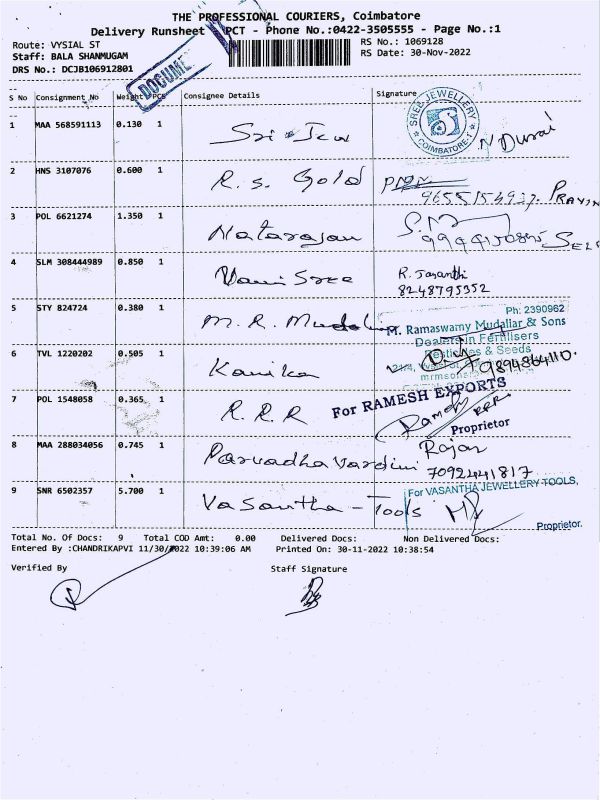 THE PROFESSIONAL COURIERS, Coimbatore
Delivery Runsheet PCT - Phone No.:0422-3505555 - Page No.:1
Route: VYSIAL ST
RS No.: 1069128
Staff: BALA SHANMUGAM
RS Date: 30-Nov-2022
DRS No.: DCJB106912801
DOCUME
S No Consignment No Weight PCS Consignee Details Signature
SREE JEWELLERY
COIMBATORE-1
1 MAA 568591113 0.130 1 Sri Jew N Durai
2 HNS 3107076 0.600 1 R. S. Gold
PRAVIN
3 POL 6621274 1.350 1 Natarajan
4 SLM 308444989 0.850 1 Vani Sree R. Jayanthi
8248795352
5 STY 824724 0.380 1 M. R. Mudaliar
Ph: 2390962
M. Ramaswamy Mudaliar & Sons
Dealers in Fertilisers
Pesticides & Seeds
6 TVL 1220202 0.505 1 Kanika
9894864110.
7 POL 1548058 0.365 1 R. R. R
For RAMESH EXPORTS
Proprietor
8 MAA 288034056 0.745 1 Parvadha vardini Rajan
7092441817
9 SNR 6502357 5.700 1 Vasantha - Tools
For VASANTHA JEWELLERY TOOLS,
Proprietor.
Total No. Of Docs: 9 Total COD Amt: 0.00 Delivered Docs: Non Delivered Docs:
Entered By :CHANDRIKAPVI 11/30/2022 10:39:06 AM Printed On: 30-11-2022 10:38:54
Verified By Staff Signature